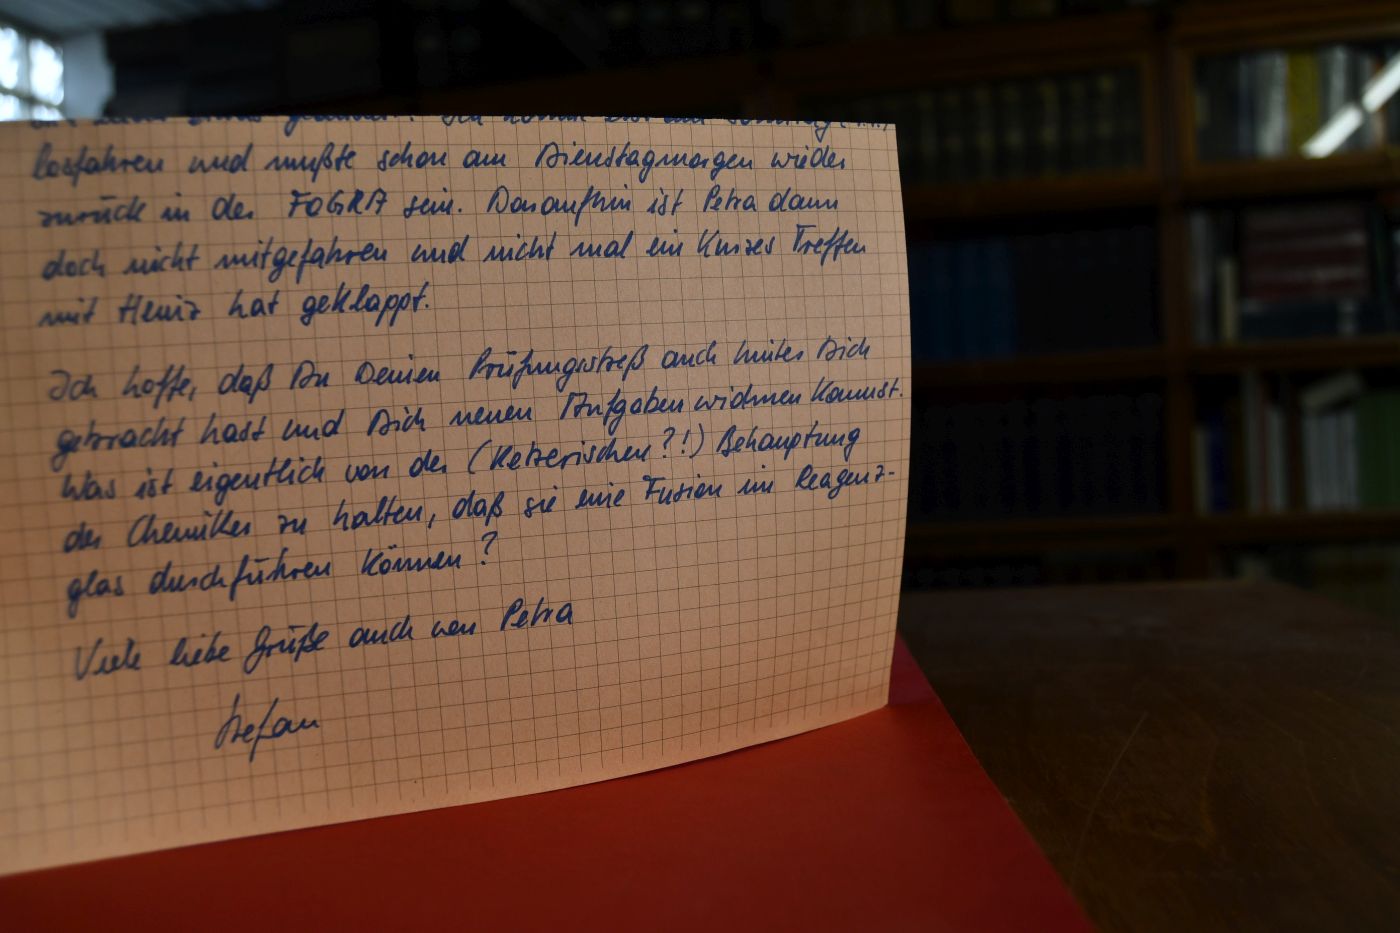 losfahren und mußte schon am Dienstagmorgen wieder
zurück in der FOGRA sein. Daraufhin ist Petra dann
doch nicht mitgefahren und nicht mal ein kurzes Treffen
mit Heinz hat geklappt.
Ich hoffe, daß Du Deinen Prüfungsstreß auch hinter Dich
gebracht hast und Dich neuen Aufgaben widmen kannst.
Was ist eigentlich von der (ketzerischen?!) Behauptung
der Chemiker zu halten, daß sie eine Fusion im Reagenz-
glas durchführen können?
Viele liebe Grüße auch von Petra
Stefan